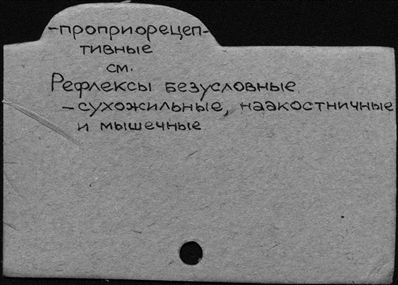 -проприорецеп-
тивные
см.
Рефлексы безусловные
- сухожильные, надкостничные
и мышечные